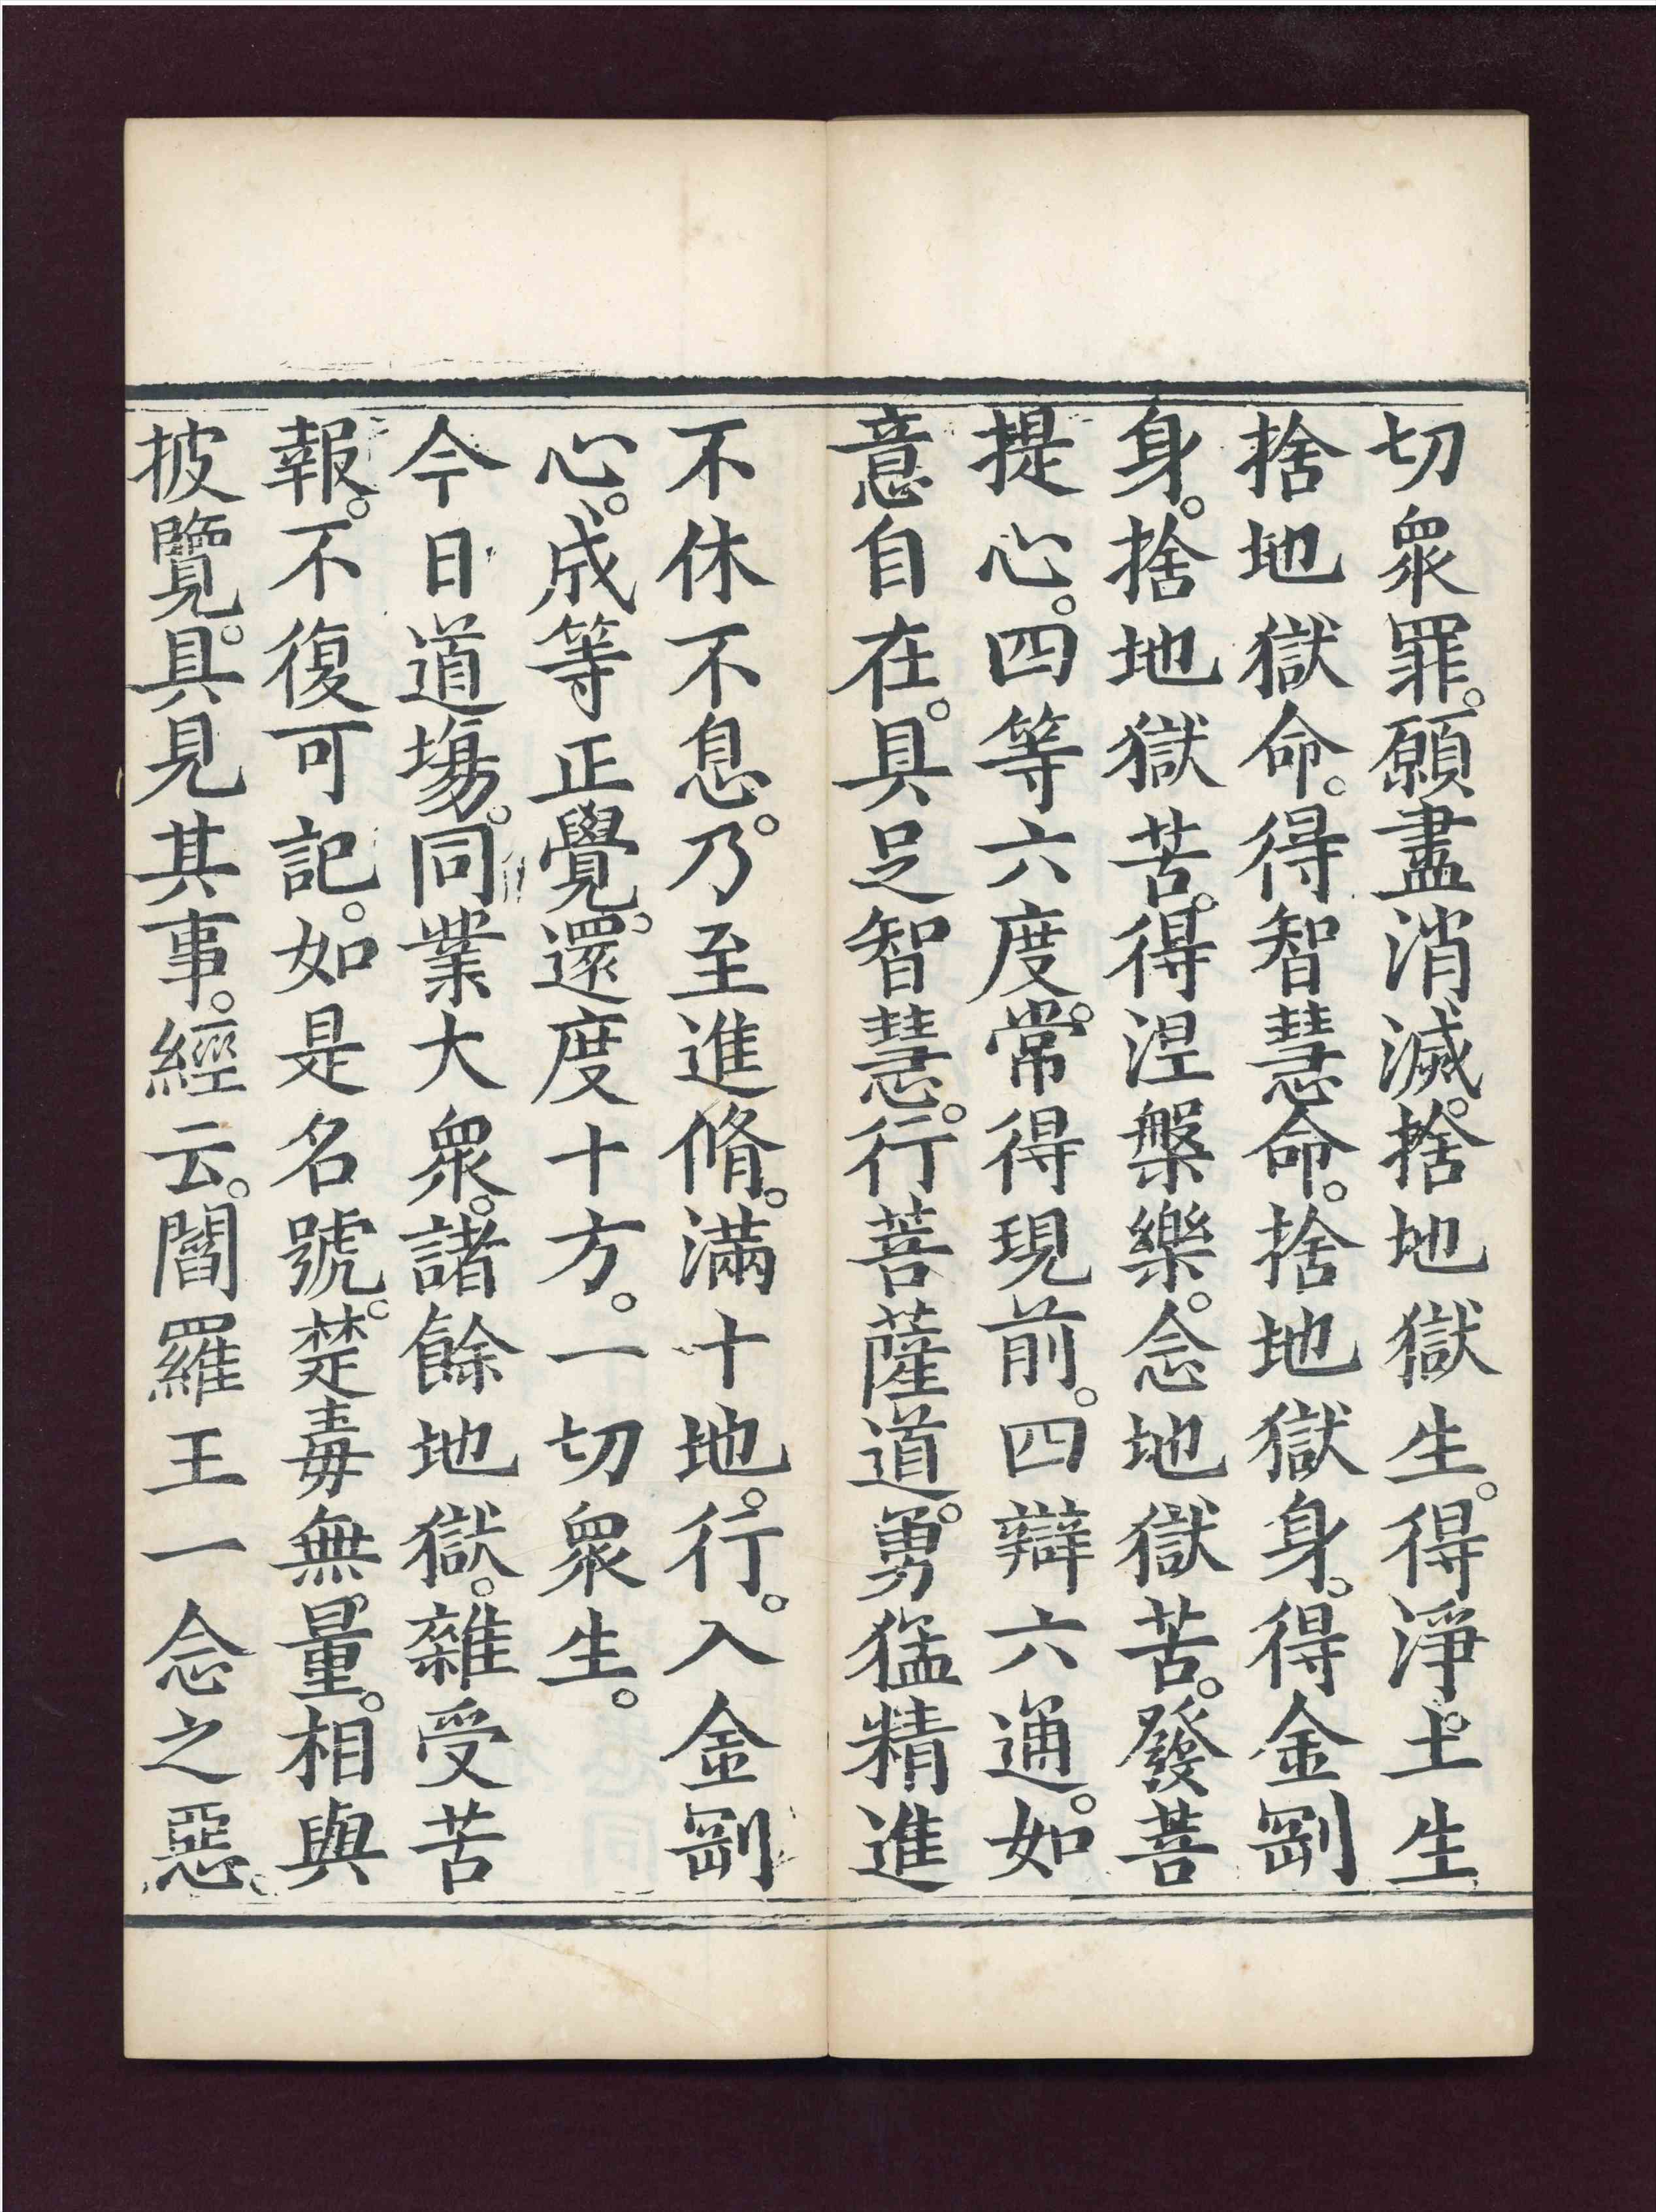 切衆罪。願盡消滅。捨地獄生。得淨土生。
捨地獄命。得智慧命。捨地獄身。得金剛
身。捨地獄苦。得涅槃樂。念地獄苦。發菩
提心。四等六度。常得現前。四辯六通。如
意自在。具足智慧。行菩薩道。勇猛精進
不休不息。乃至進脩。滿十地行。入金剛
心。成等正覺。還度十方。一切衆生。
今日道塲。同業大衆。諸餘地獄。雜受苦
報。不復可記。如是名號。楚毒無量。相與
披覽。具見其事。經云。閻羅王一念之惡